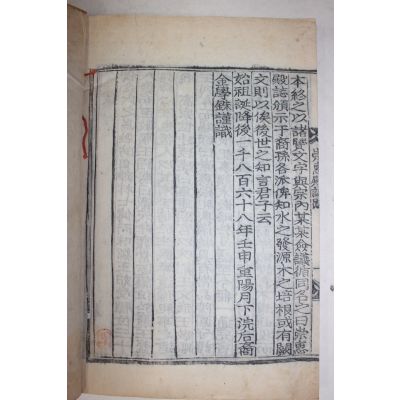 本終之以諸賢文字與崇內某某僉議循同名之曰崇惠
殿誌頒示于裔孫各派俾知水之發源木之培根或有闕
文則以俟後世之知言君子云
始祖誕降後一千八百六十八年壬申重陽月下浣后裔
金學銖謹識
崇惠殿誌